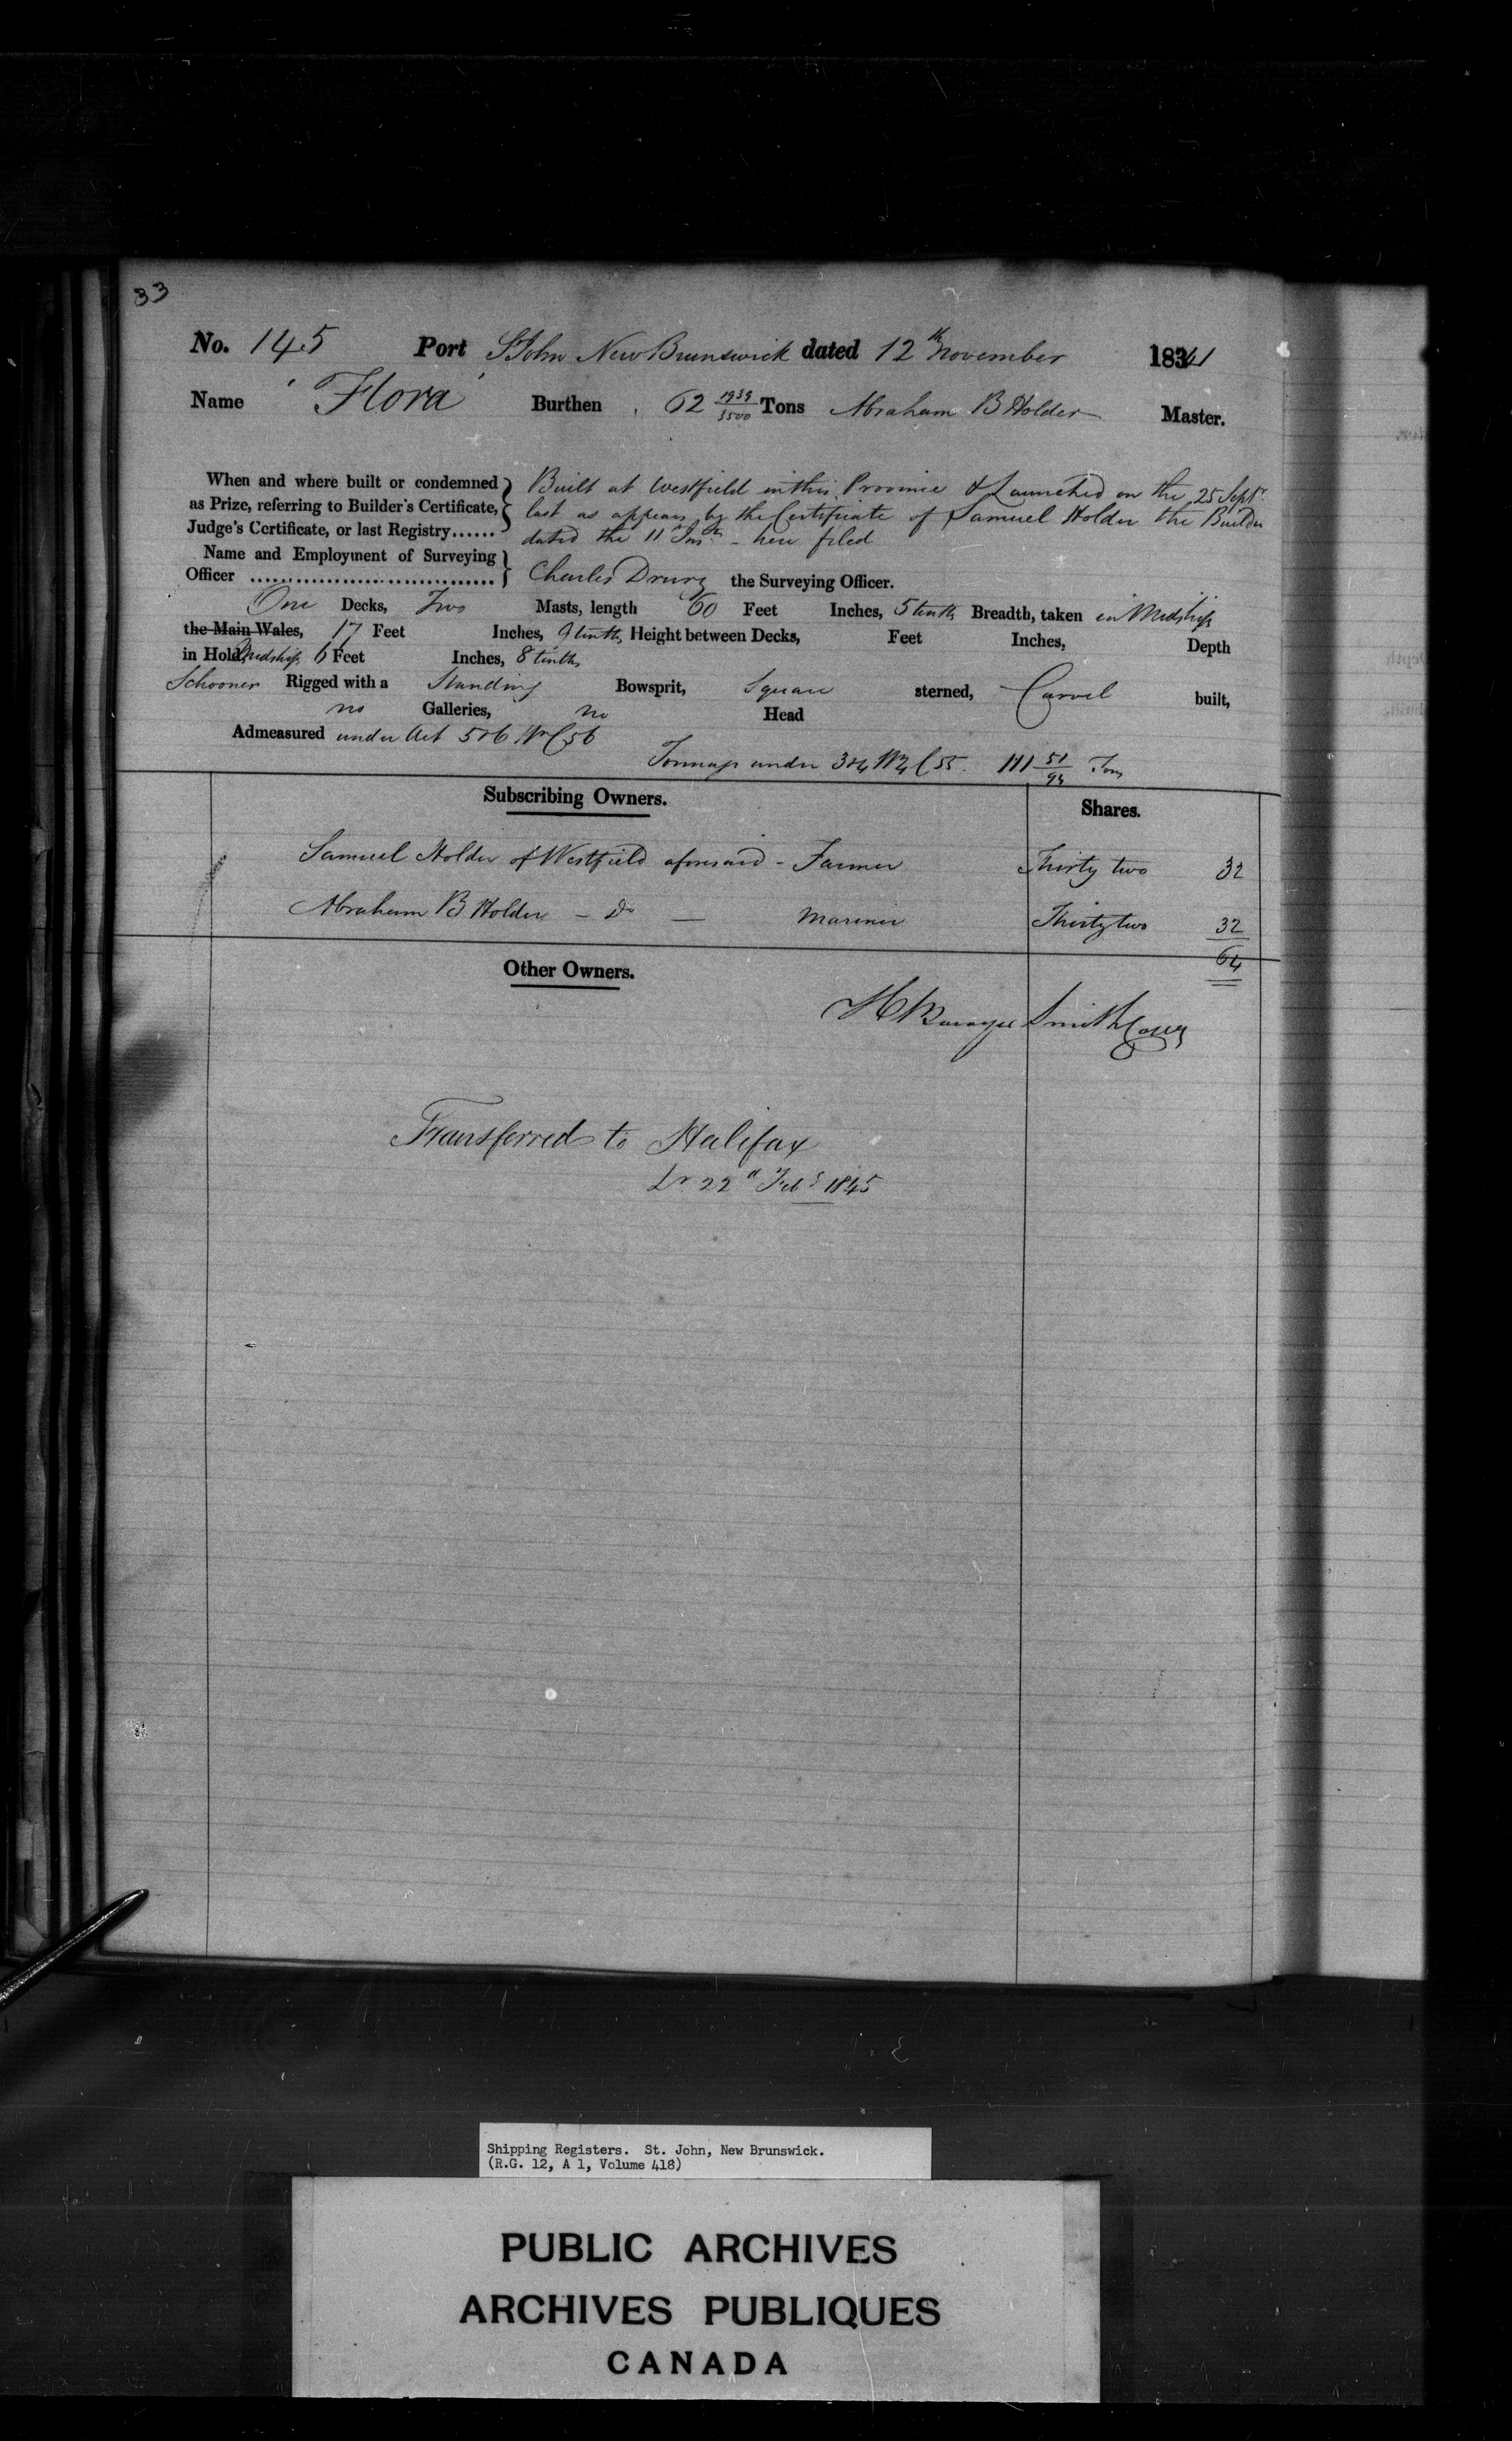 33
No. 145 Port St John New Brunswick dated 12th November 1841
Name 'Flora' Burthen 62 1939/3500 Tons Abraham B Holder Master.
When and where built or condemned as Prize, referring to Builder's Certificate, Judge's Certificate, or last Registry......
Built at Westfield in this Province & Launched on the 25 Sept.
last as appears by the Certificate of Samuel Holder the Builder
dated the 11 Inst. - here filed
Name and Employment of Surveying
Officer .............................. Charles Drury the Surveying Officer.
One Decks, Two Masts, length 60 Feet Inches, 5 tenths Breadth, taken in Midships
the Main Wales, 17 Feet Inches, 9 tenths Height between Decks, Feet Inches, Depth
in Hold Midships 6 Feet Inches, 8 tenths
Schooner Rigged with a Standing Bowsprit, Square sterned, Carvel built,
no Galleries, no Head
Admeasured under Act 5&6 Wm C56
Tonnage under 3&4 W4 C55. 111 51/94 Tons
Subscribing Owners. Shares.
Samuel Holder of Westfield aforesaid - Farmer Thirty two 32
Abraham B Holder - Do — Mariner Thirty two 32
64
Other Owners.
H Bowyer Smith
Transferred to Halifax
Lr. 22d Feby 1845
Shipping Registers. St. John, New Brunswick.
(R.G. 12, A 1, Volume 418)
PUBLIC ARCHIVES
ARCHIVES PUBLIQUES
CANADA